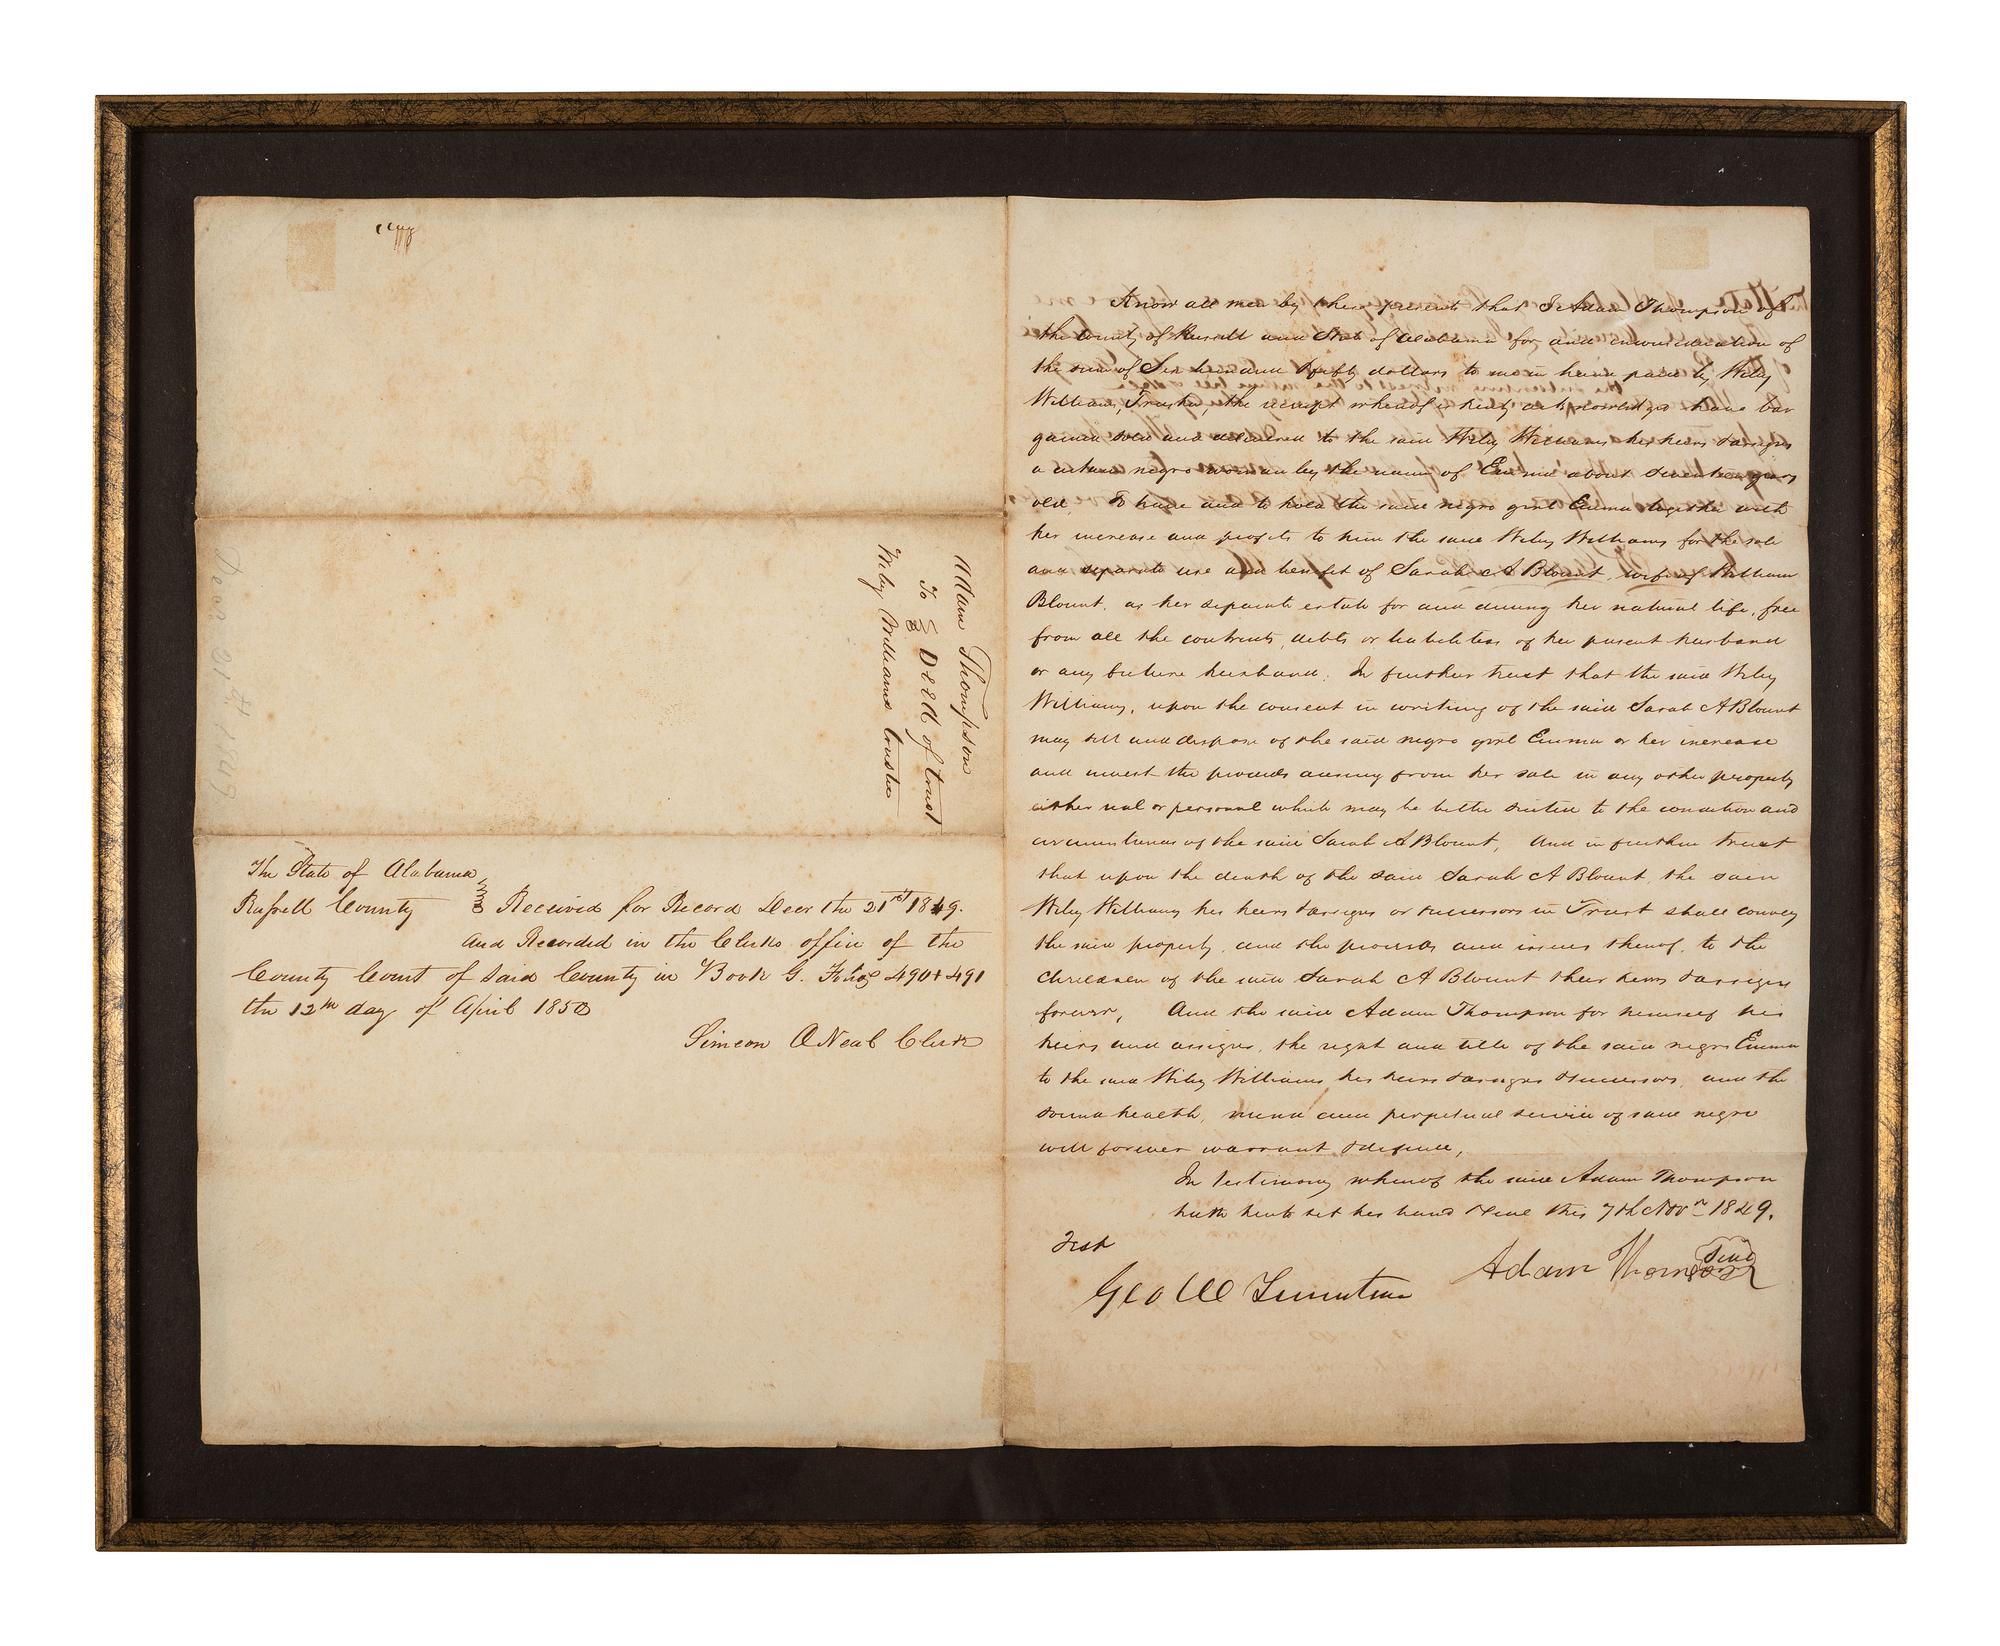 Adam Thompson
To } Deed of trust
Wiley Williams trustee
Decr 21st 1849
The State of Alabama
Russell County } Received for Record Decr the 21st 1849.
and Recorded in the Clerks office of the
County Court of said County in Book G. Folio 490 + 491
the 12th day of April 1850
Simeon ONeal Clerk
Know all men by these presents that I Adam Thompson of
the County of Russell and State of Alabama for and inconsideration of
the sum of Six hundred & fifty dollars to me in hand paid by Wiley
Williams, Trustee, the receipt whereof is hereby acknowledged have bar
gained sold and delivered to the said Wiley Williams his heirs & assigns
a certain negro woman by the name of Emma about seventeen years
old. To have and to hold the said negro girl Emma together with
her increase and profits to him the said Wiley Williams for the sole
and separate use and benefit of Sarah A Blount, wife of William
Blount, as her separate estate for and during her natural life, free
from all the contracts, debts or liabilities of her present husband
or any future husband. In further trust that the said Wiley
Williams, upon the consent in writing of the said Sarah A Blount
may sell and dispose of the said negro girl Emma or her increase
and invest the proceeds arising from her sale in any other property
either real or personal which may be better suited to the condition and
circumstances of the said Sarah A Blount, And in further trust
that upon the death of the said Sarah A Blount, the said
Wiley Williams his heirs & assigns or successors in Trust shall convey
the said property, and the proceeds and issues thereof, to the
children of the said Sarah A Blount their heirs & assigns
forever, And the said Adam Thompson for himself his
heirs and assigns, the right and title of the said negro Emma
to the said Wiley Williams, his heirs & assigns & successors, and the
sound health, mind and perpetual service of said negro
will forever warrant & defend,
In testimony whereof the said Adam Thompson
hath hereto set his hand & seal this 7th Novr 1849.
Test
Adam Thompson Seal
Geo W